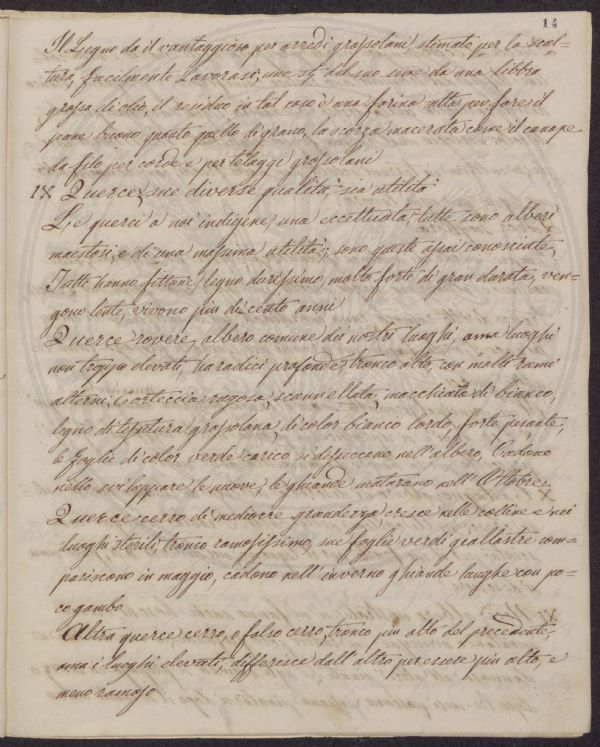 14
Il Legno da il vantaggioso per arredi grossolani, stimato per la scol-
tura, facilmente Lavorasi; uno del suo seme da una libbra
grossa di olio, il residuo in tal caso è una farina atta per fare il
pane buono quanto quello di grano, la scorza macerata come il canape
da filo per corde e per telaggi grossolani
IX Querce, sue diverse qualità, sua utilità
Le querci a noi indigene, una eccettuata, tutte sono alberi
maestosi, e di una massima utilità; sono queste assai conosciute,
Tutte hanno fittone, legno durissimo, molto forte di gran durata, ven-
gono lente, vivono piu di cento anni
Querce rovere, albero comune dei nostri luoghi, ama luoghi
non troppo elevati, ha radici profonde, tronco alto, con molti rami
alterni, corteccia rugosa, scannellata, macchiata di bianco,
legno di tessitura grossolana, di color bianco lordo, forte pesante,
le foglie di color verde carico si disseccano nell'albero, Cadono
nello sviluppare le nuove, le ghiande maturano nell'Ottobre
Querce cerro di mediocre grandezza, cresce nelle colline e nei
luoghi sterili, tronco ramosissimo, sue foglie verdi giallastre com-
pariscono in maggio, cadono nell'inverno ghiande lunghe con po-
co gambo
Altra querce cerro, o falso cerro, tronco piu alto del precedente,
ama i luoghi elevati, differisce dall'altro per essere piu alto, e
meno ramoso